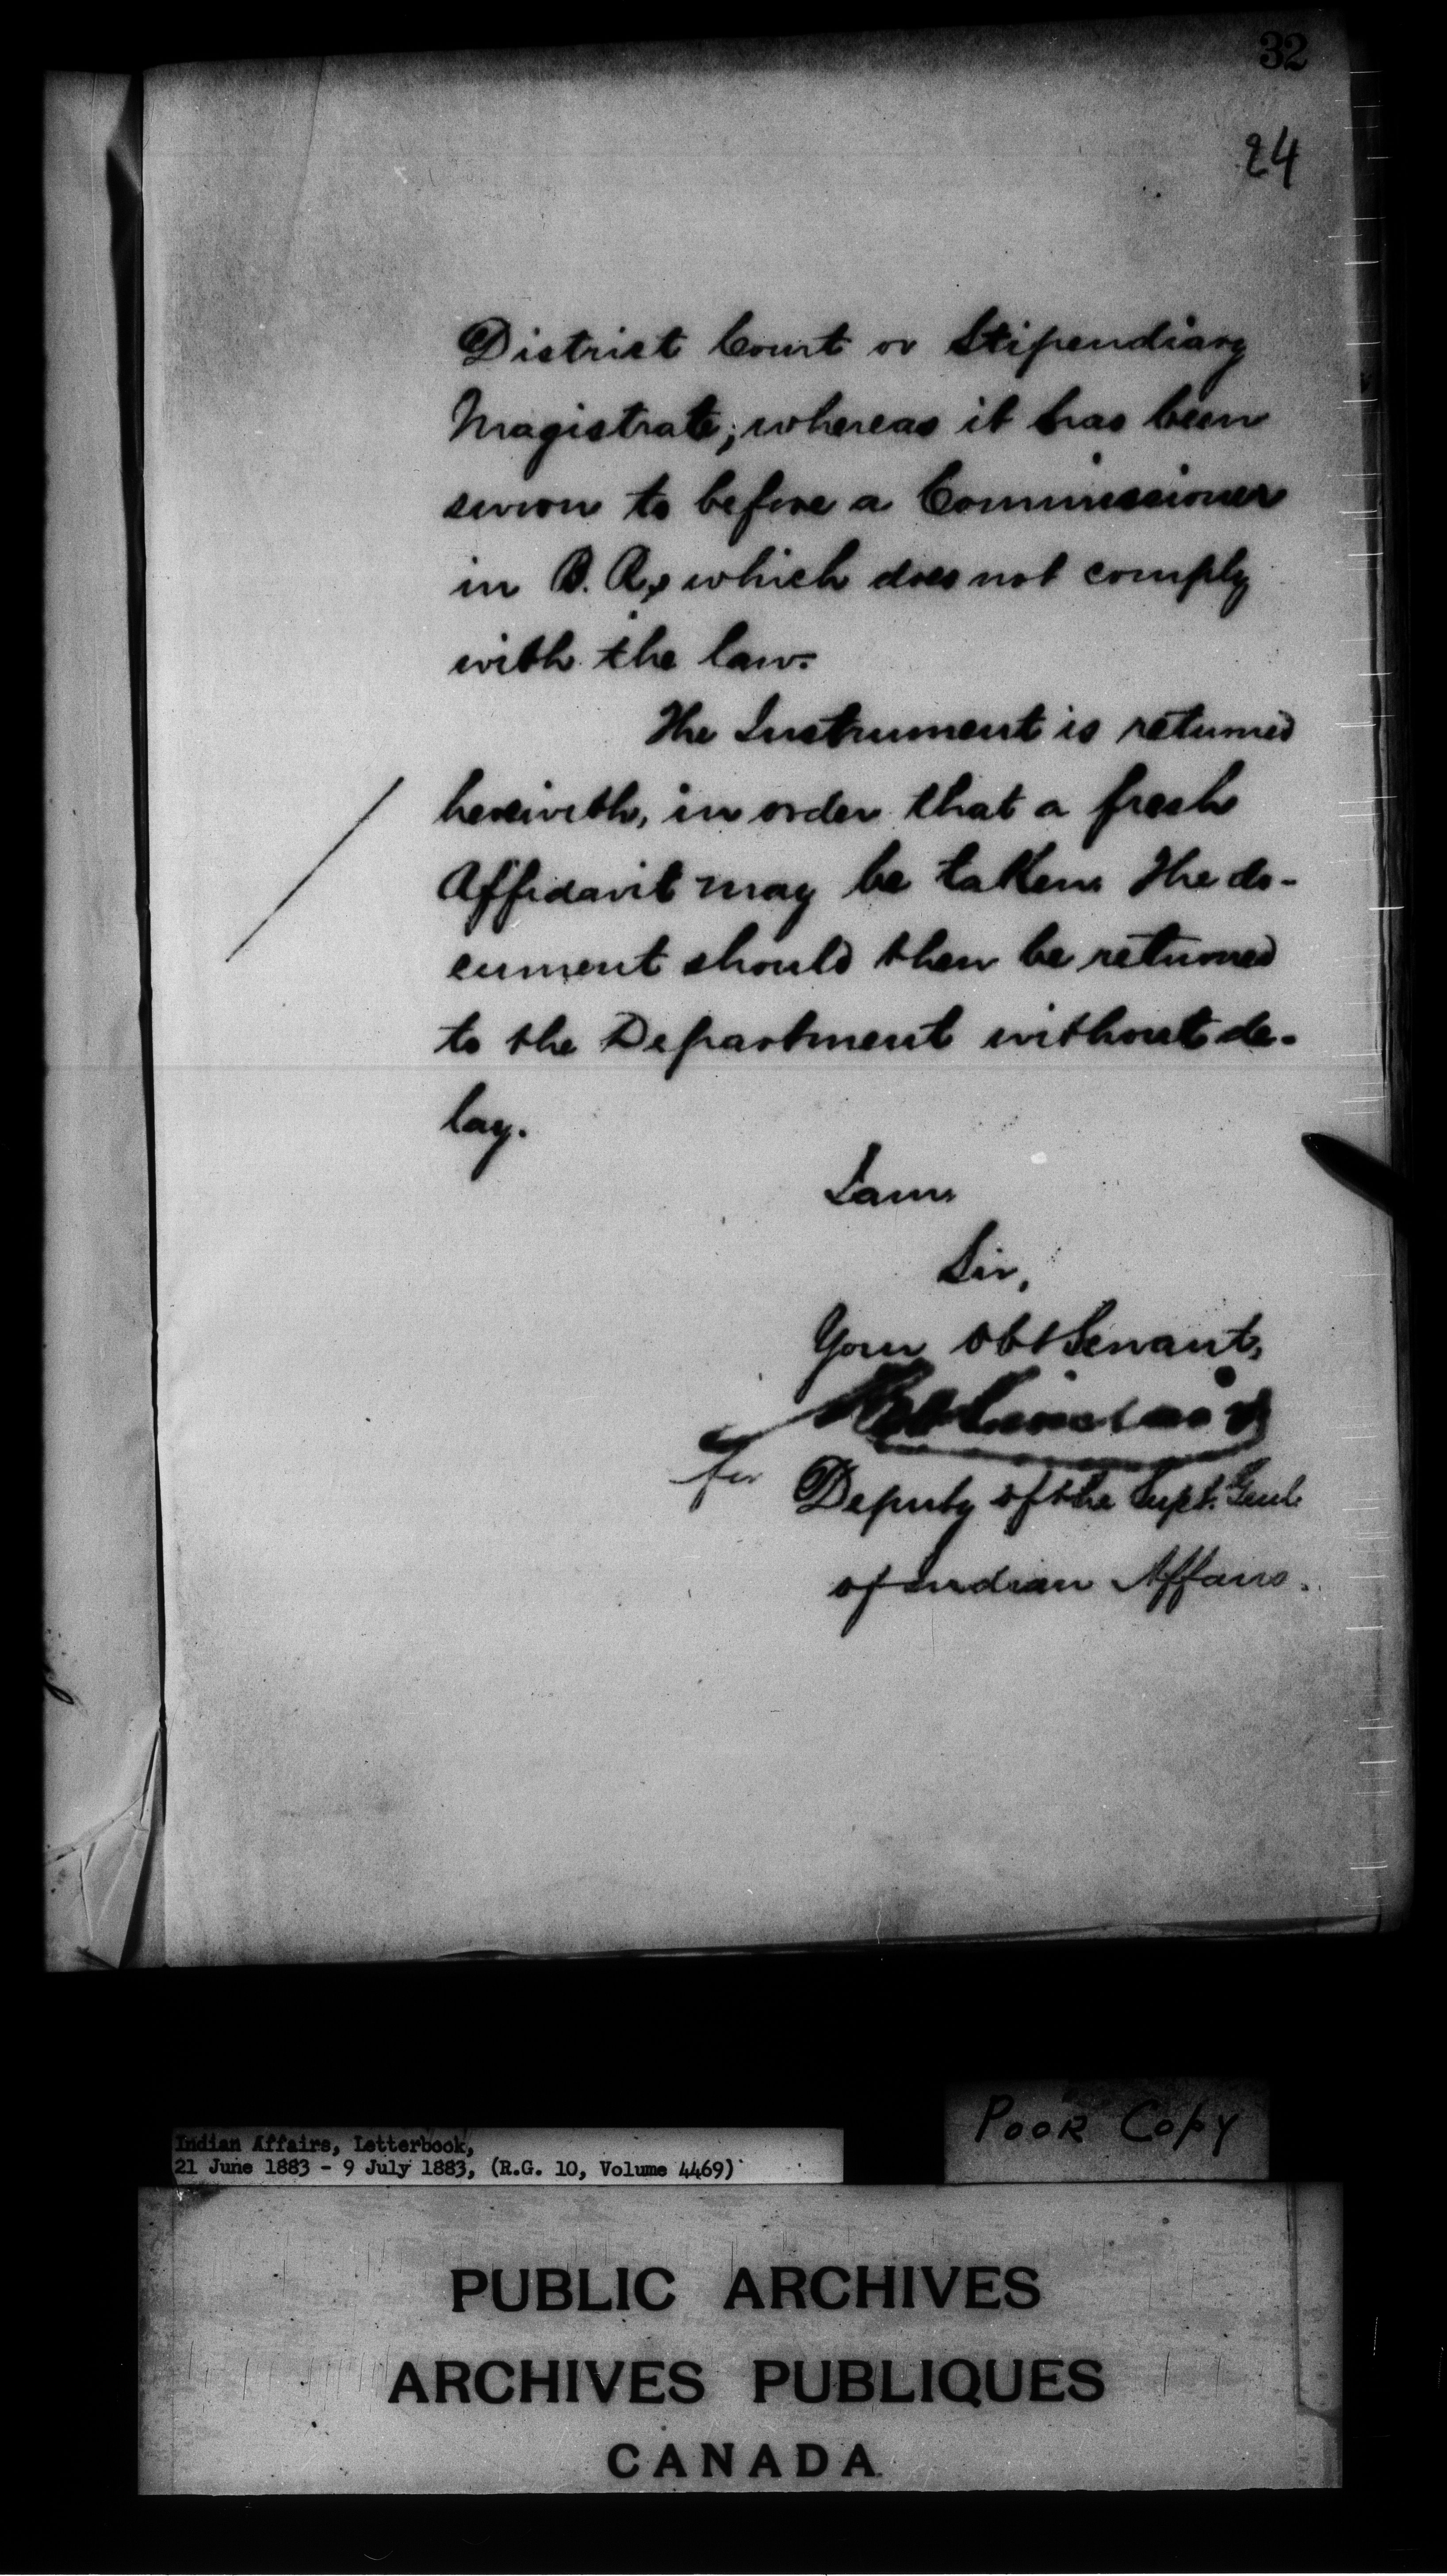 32
24
District Court or Stipendiary
Magistrate; whereas it has been
sworn to before a Commissioner
in B. R, which does not comply
with the law.
The Instrument is returned
herewith, in order that a fresh
Affidavit may be taken. The do-
cument should then be returned
to the Department without de-
lay.
I am
Sir,
Your obt Servant,
Sinclair
for Deputy of the Supt. Genl.
of Indian Affairs.
Poor Copy
Indian Affairs, Letterbook,
21 June 1883 - 9 July 1883, (R.G. 10, Volume 4469)
PUBLIC ARCHIVES
ARCHIVES PUBLIQUES
CANADA